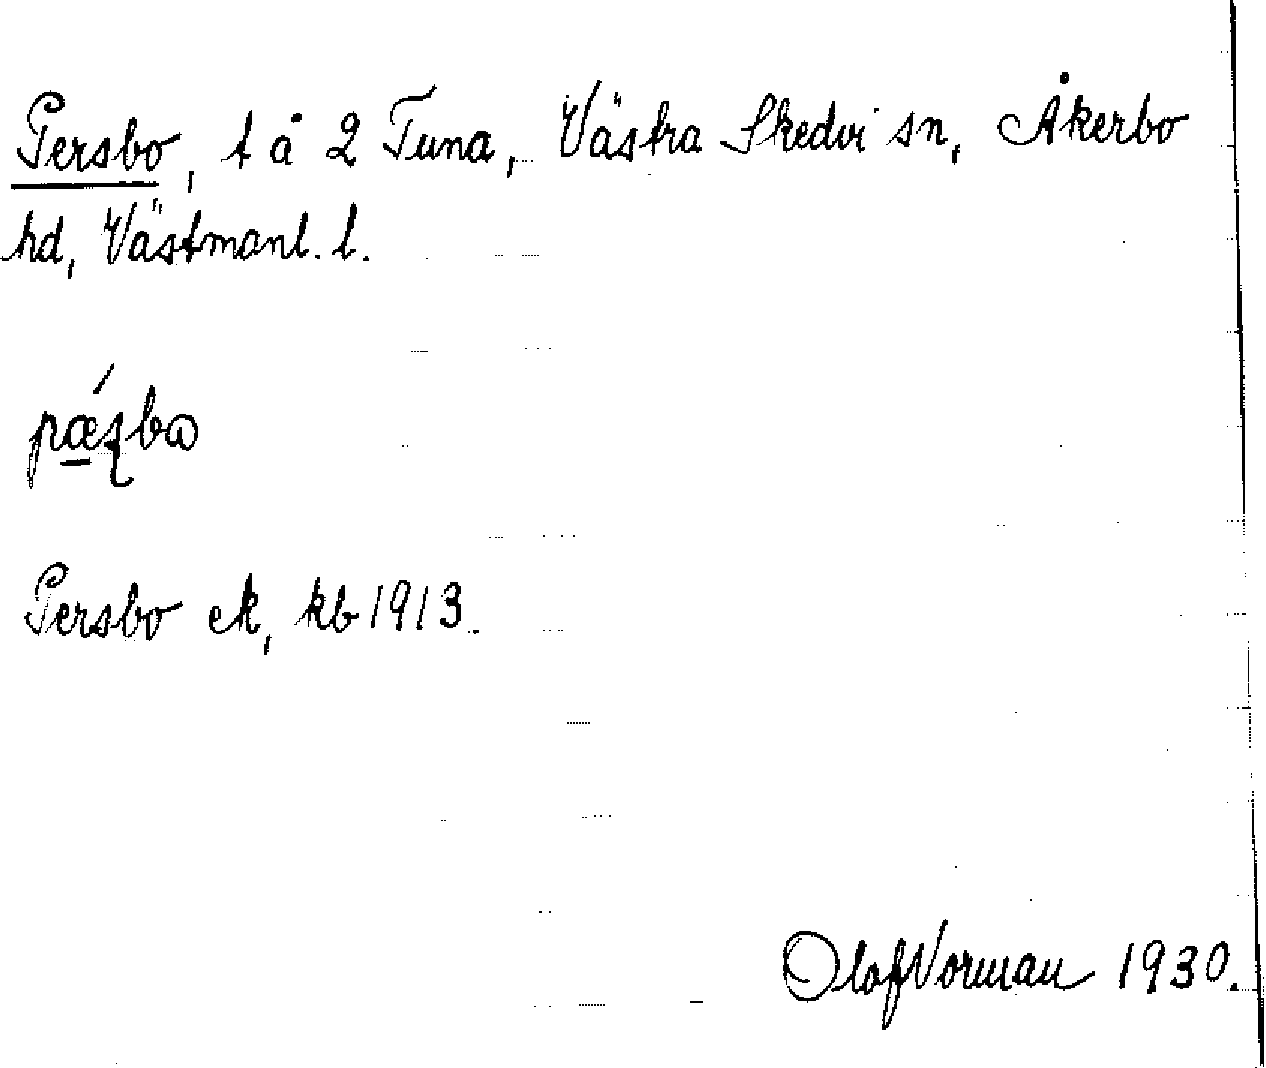 Persbo, t å 2 Tuna, Västra Skedvi sn, Åkerbo
hd, Västmanl. l.
Persbo ek, kb 1913.
Olof Norman 1930.